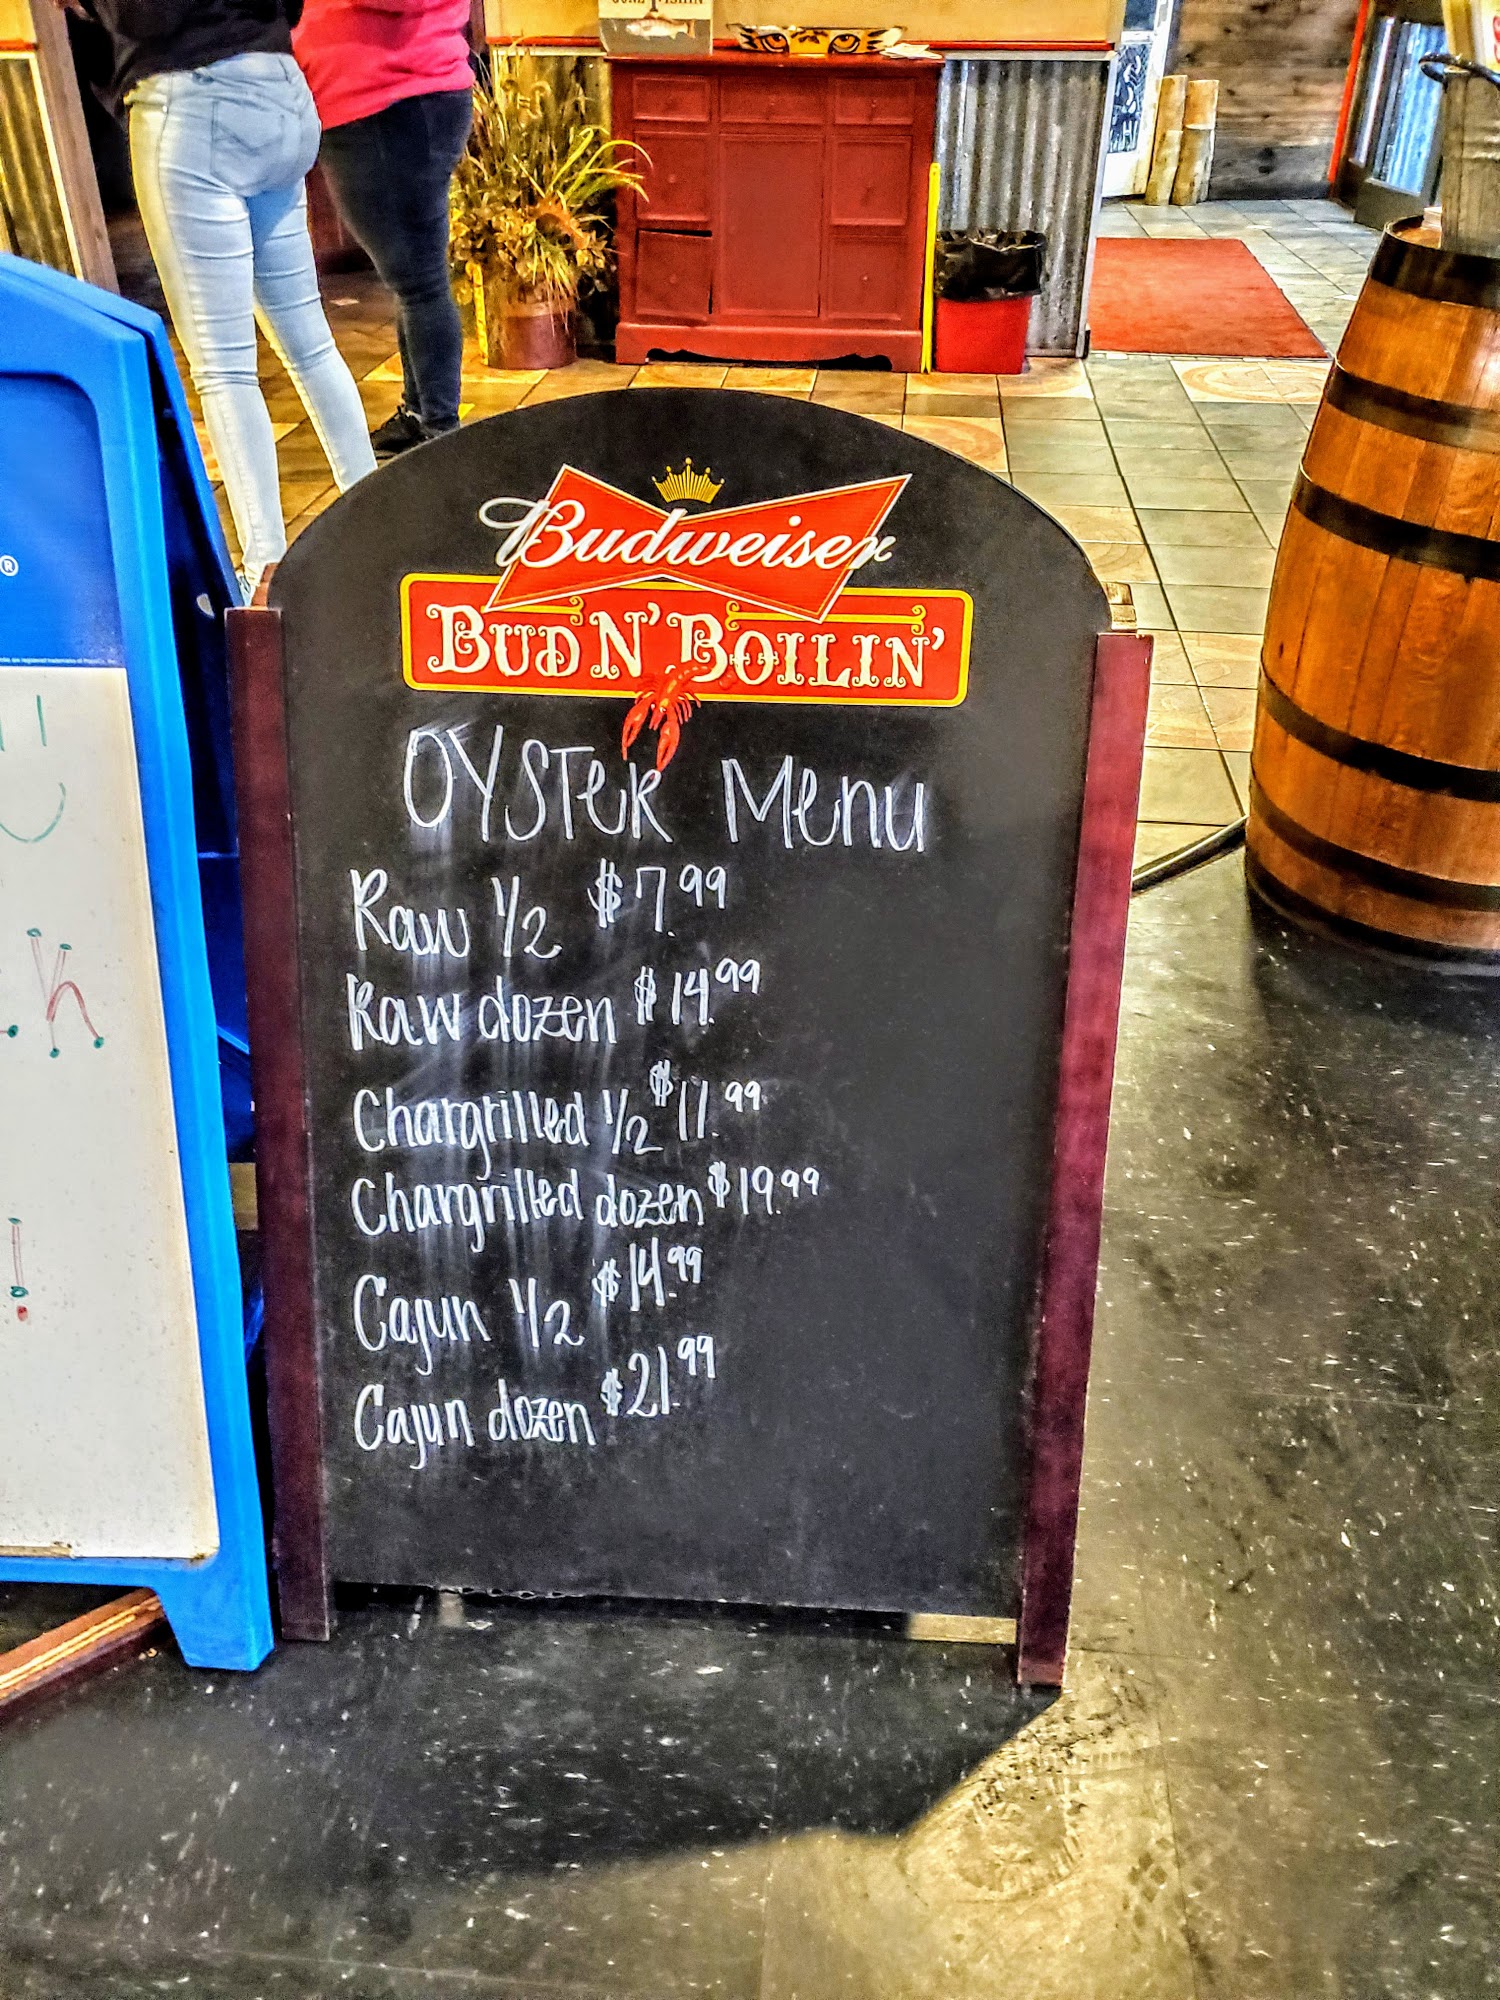 GONE FISHIN
Budweiser
BUD N' BOILIN'
OYSTER Menu
Raw 1/2 $7.99
Raw dozen $14.99
Chargrilled 1/2 $11.99
Chargrilled dozen $19.99
Cajun 1/2 $14.99
Cajun dozen $21.99
®